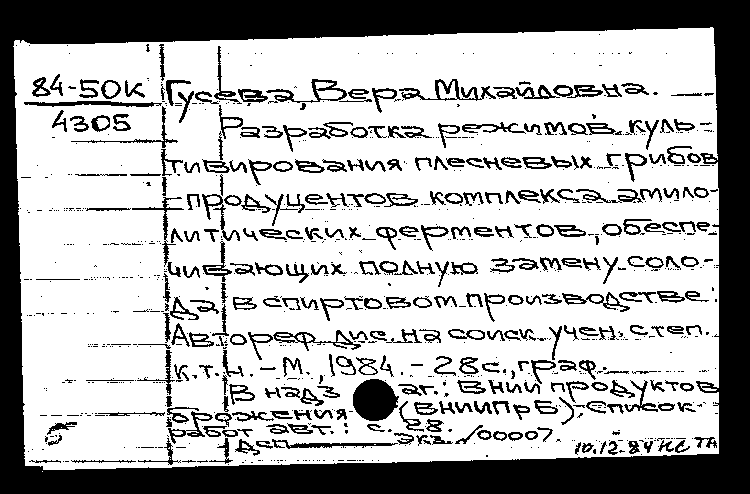 84-50К Гусева, Вера Михайловна.
4305 Разработка режимов куль-
тивирования плесневых грибов
-продуцентов комплекса амило-
литических ферментов, обеспе-
чивающих полную замену соло-
да в спиртовом производстве:
Автореф. дис. на соиск. учен. степ.
к.т.н. - М., 1984. - 28 с., граф.
В надз аг.: ВНИИ продуктов
брожения (ВНИИПрБ). Список
работ авт.: с. 28.
б Деп экз. /00007.
10.12.84 НС ТА